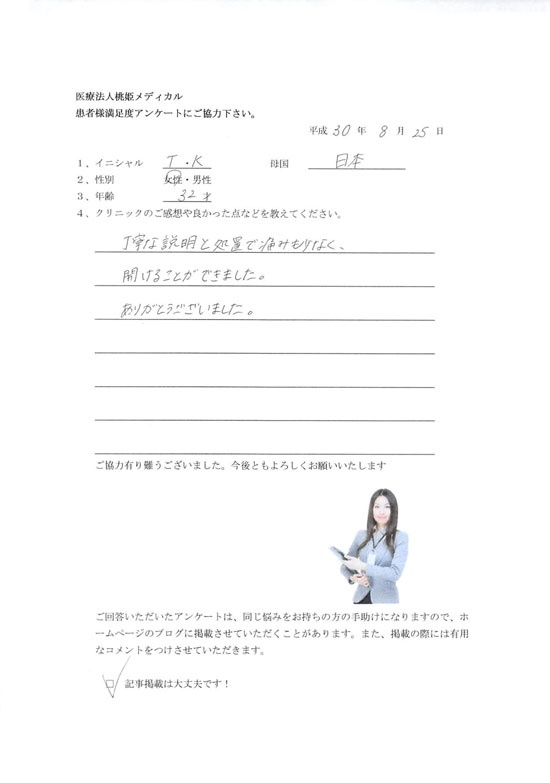 医療法人桃姫メディカル
患者様満足度アンケートにご協力下さい。
平成 30 年 8 月 25 日
1、イニシャル T・K 母国 日本
2、性別 女性・男性
3、年齢 32 才
4、クリニックのご感想や良かった点などを教えてください。
丁寧な説明と処置で痛みもなく、
開けることができました。
ありがとうございました。
ご協力有り難うございました。今後ともよろしくお願いいたします
ご回答いただいたアンケートは、同じ悩みをお持ちの方の手助けになりますので、ホ
ームページのブログに掲載させていただくことがあります。また、掲載の際には有用
なコメントをつけさせていただきます。
□ 記事掲載は大丈夫です！